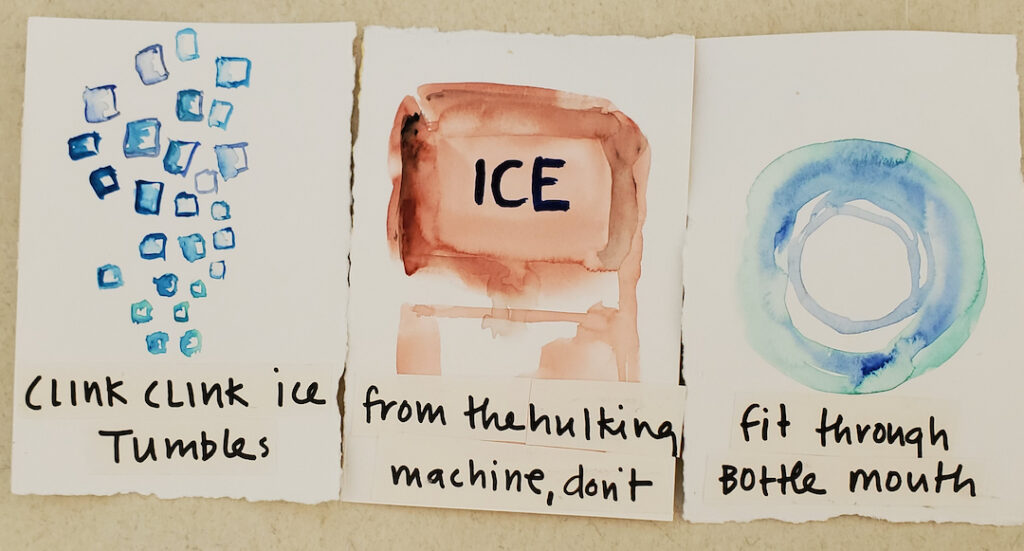 CLINK CLINK ice
TUMBLES
ICE
from the hulking
machine, don't
fit through
BOTTLE mouth